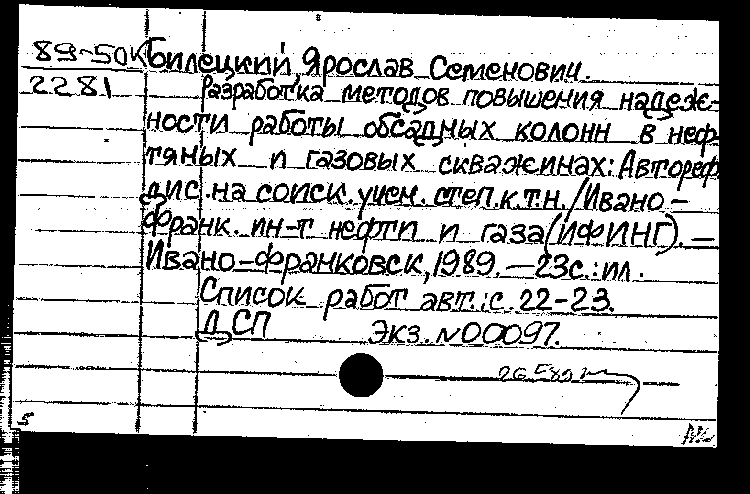 89-50К Билецкий, Ярослав Семенович.
2281 Разработка методов повышения надеж-
ности работы обсадных колонн в неф-
тяных и газовых скважинах: Автореф.
дис. на соиск. учен. степ. к.т.н. /Ивано-
Франк. ин-т нефти и газа (ИФИНГ). —
Ивано-Франковск, 1989. — 23с.: ил.
Список работ авт.: с. 22-23.
ДСП Экз. N00097.
5